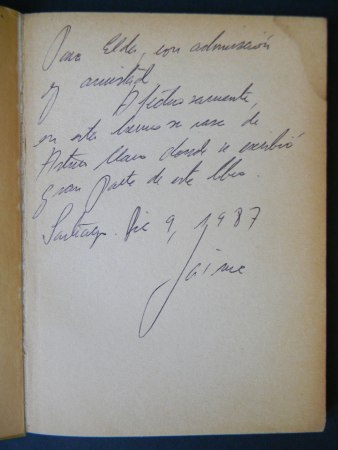 Para Elda, con admiración
y amistad
Afectuosamente,
en esta hermosa casa de
Arturo Claro donde se escribió
gran parte de este libro.
Santiago. Dic 9, 1987
Jaime